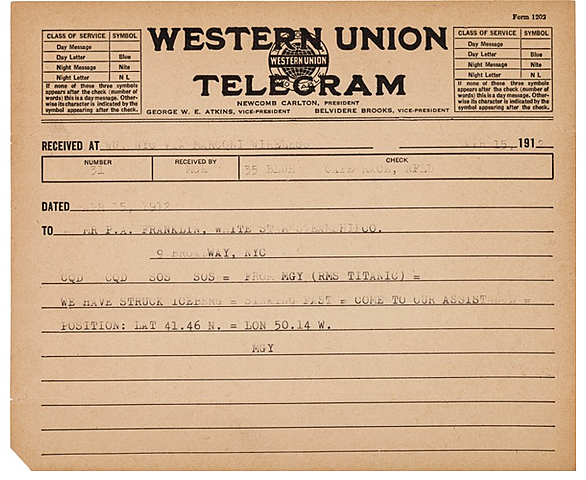 Form 1202
CLASS OF SERVICE SYMBOL
Day Message
Day Letter Blue
Night Message Nite
Night Letter N L
If none of these three symbols
appears after the check (number of
words) this is a day message. Other-
wise its character is indicated by the
symbol appearing after the check.
WESTERN UNION
WESTERN UNION
TELEGRAM
NEWCOMB CARLTON, PRESIDENT
GEORGE W. E. ATKINS, VICE-PRESIDENT BELVIDERE BROOKS, VICE-PRESIDENT
CLASS OF SERVICE SYMBOL
Day Message
Day Letter Blue
Night Message Nite
Night Letter N L
If none of these three symbols
appears after the check (number of
words) this is a day message. Other-
wise its character is indicated by the
symbol appearing after the check.
RECEIVED AT WU. NYC VIA MARCONI WIRELESS APR 15, 1912
NUMBER RECEIVED BY CHECK
31 MGE 35 BLUE CAPE RACE, NFLD
DATED APR 15, 1912
TO MR P.A. FRANKLIN, WHITE STAR STEAMSHIP CO.
9 BROADWAY, NYC
CQD CQD SOS SOS = FROM MGY (RMS TITANIC) =
WE HAVE STRUCK ICEBERG = SINKING FAST = COME TO OUR ASSISTANCE =
POSITION: LAT 41.46 N. = LON 50.14 W.
MGY